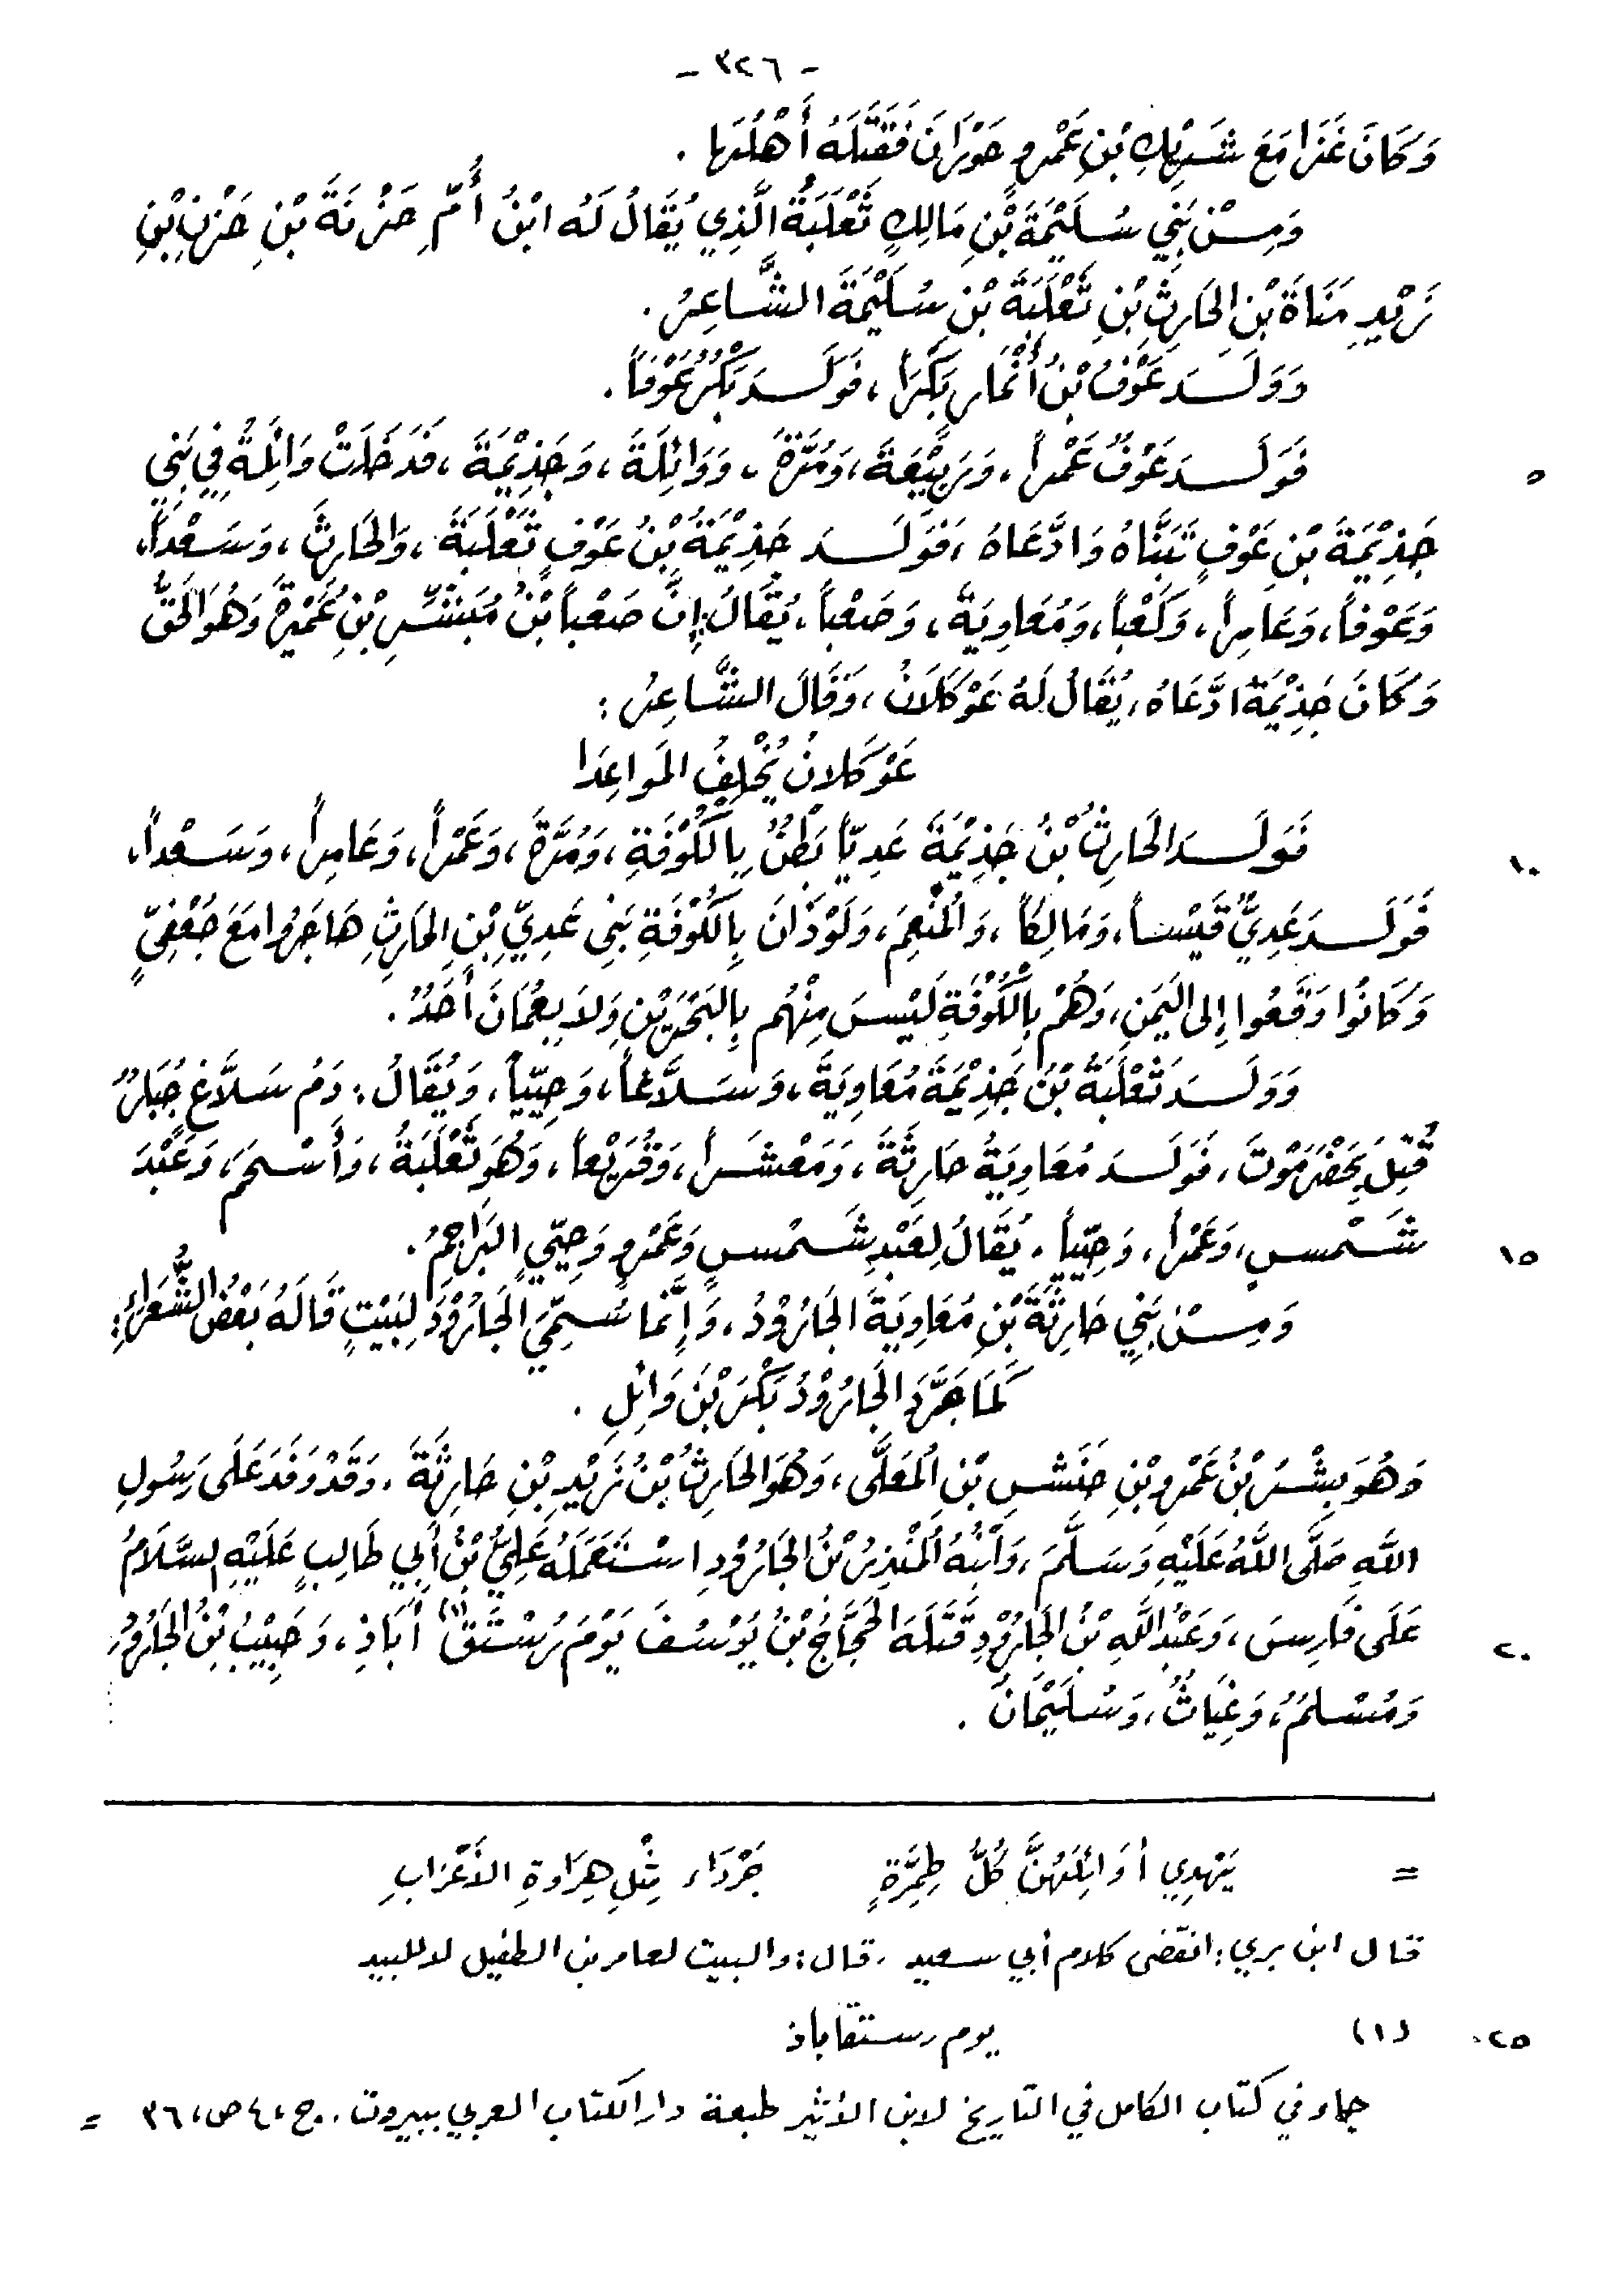 - ٣٢٦ -
وَكَانَ غَزَا مَعَ شَرِيْكِ بْنِ عَمْرٍو حَوْرَانَ فَقَتَلَهُ أَهْلُهَا .
وَمِنْ بَنِي سُلَيْمَةَ بْنِ مَالِكٍ ثَعْلَبَةُ الَّذِي يُقَالُ لَهُ ابْنُ أُمِّ حَزْنَةَ بْنِ حَزْنِ بْنِ
زَيْدِ مَنَاةَ بْنِ الحَارِثِ بْنِ ثَعْلَبَةَ بْنِ سُلَيْمَةَ الشَّاعِرُ .
وَوَلَدَ عَوْفُ بْنُ أَنْمَارٍ بَكْرَاً ، فَوَلَدَ بَكْرٌ عَوْفَاً .
٥ فَوَلَدَ عَوْفٌ عَمْراً ، وَرَبِيْعَةَ ، وَمُرَّةَ ، وَوَائِلَةَ ، وَجَذِيْمَةَ ، فَدَخَلَتْ وَائِلَةُ فِي بَنِي
جَذِيْمَةَ بْنِ عَوْفٍ تَبَنَّاهُ وَادَّعَاهُ ، فَوَلَدَ جَذِيْمَةُ بْنُ عَوْفٍ ثَعْلَبَةَ ، وَالحَارِثَ ، وَسَعْداً ،
وَعَوْفاً ، وَعَامِراً ، وَكَعْباً ، وَمُعَاوِيَةَ ، وَصَعْباً ، يُقَالُ إِنَّ صَعْباً بْنُ مُبَشِّرِ بْنِ عُمَيْرَةَ وَهُوَ الحَقُّ
وَكَانَ جَذِيْمَةُ ادَّعَاهُ ، يُقَالُ لَهُ عَوْكَلَانُ ، وَقَالَ الشَّاعِرُ :
عَوْكَلانُ يُخْلِفُ المَواعِدَا
١٠ فَوَلَدَ الحَارِثُ بْنُ جَذِيْمَةَ عَدِيّاً بَطْنٌ بِالكُوْفَةِ ، وَمُرَّةَ ، وَعَمْراً ، وَعَامِراً ، وَسَعْداً ،
فَوَلَدَ عَدِيٌّ قَيْساً ، وَمَالِكاً ، وَالمُنْعِمَ ، وَلَوْذَانَ بِالكُوْفَةِ بَنِي عَدِيِّ بْنِ الحَارِثِ هَاجَرُوا مَعَ جُعْفِيٍّ
وَكَانُوا وَقَعُوا إِلى اليَمَنِ ، وَهُمْ بِالكُوْفَةِ لَيْسَ مِنْهُم بِالبَحْرَيْنِ وَلا بِعُمَانَ أَحَدٌ .
وَوَلَدَ ثَعْلَبَةُ بْنُ جَذِيْمَةَ مُعَاوِيَةَ ، وَسَلَّاغاً ، وَحِيَيّاً ، وَيُقَالُ : دَمُ سَلَّاغٍ جُبَارٌ
قُتِلَ بِحَضْرَمَوْتَ ، فَوَلَدَ مُعَاوِيَةُ حَارِثَةَ ، وَمَعْشَراً ، وَقُرَيْعاً ، وَهُوَ ثَعْلَبَةُ ، وَأَسْحَمَ ، وَعَبْدَ
١٥ شَمْسٍ ، وَعَمْراً ، وَحِيَيّاً . يُقَالُ لِعَبْدِ شَمْسٍ وَعَمْرٍو وَحِيَيٍّ البَرَاجِمُ .
وَمِنْ بَنِي حَارِثَةَ بْنِ مُعَاوِيَةَ الجَارُوْدُ ، وَإِنَّمَا سُمِّيَ الجَارُوْدَ لِبَيْتٍ قَالَهُ بَعْضُ الشُّعَرَاءِ :
كَمَا جَرَّدَ الجَارُوْدُ بَكْرَ بْنَ وَائِلِ .
وَهُوَ بِشْرُ بْنُ عَمْرِو بْنِ حَنَشِ بْنِ المُعَلَّى ، وَهُوَ الحَارِثُ بْنُ زَيْدِ بْنِ حَارِثَةَ . وَقَدْ وَفَدَ عَلَى رَسُولِ
اللَّهِ صَلَّى اللَّهُ عَلَيْهِ وَسَلَّمَ ، وَابْنُهُ المُنْذِرُ بْنُ الجَارُوْدِ اسْتَعْمَلَهُ عَلِيُّ بْنُ أَبِي طَالِبٍ عَلَيْهِ السَّلَامُ
٢٠ عَلَى فَارِسَ ، وَعَبْدُ اللَّهِ بْنُ الجَارُوْدِ قَتَلَهُ الحَجَّاجُ بْنُ يُوْسُفَ يَوْمَ رُسْتَقُ (١) أَبَاذِ ، وَحَبِيْبُ بْنُ الجَارُوْدِ
وَمُسْلِمٌ ، وَغِيَاثٌ ، وَسُلَيْمَانُ .
= يَهْدِي أوَائِلَهُنَّ كُلُّ طِمِرَّةٍ جَرْدَاءَ مِثْلِ هِرَاوةِ الأَعْزَابِ
قال ابن بري : انقضى كلام أبي سعيد ، قال : والبيت لعامر بن الطفيل لا للبيد
٢٥ (١) يوم رستقاباذ
جاء في كتاب الكامل في التاريخ لابن الأثير طبعة دار الكتاب العربي ببيروت . ج ، ٤ ص ، ٣٦ =